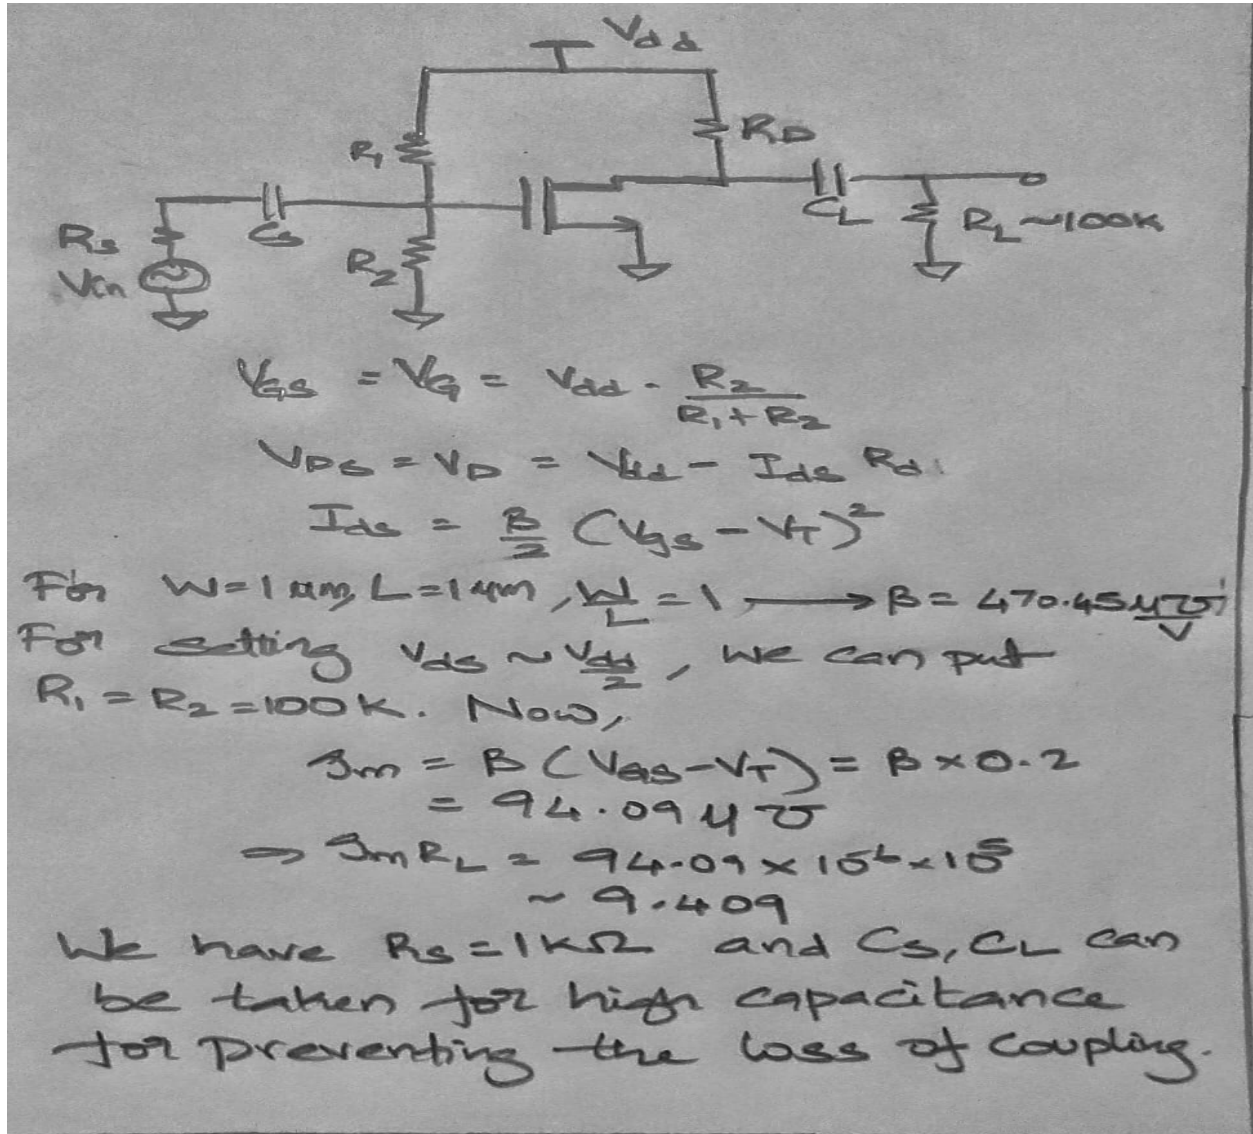 Vdd
R1
RD
Cs
CL
Rs
R2
RL ~100K
Vin
VGS = VG = Vdd · R2 / (R1 + R2)
VDS = VD = Vdd - Ids Rd
Ids = β/2 (Vgs - VT)²
For W=1μm, L=1μm, W/L = 1, → β = 470.45 μ℧/V
For setting Vds ~ Vdd/2, we can put
R1 = R2 = 100K. Now,
gm = β (VGS-VT) = β×0.2
= 94.09 μ℧
⇒ gm RL = 94.09 × 10⁻⁶ × 10⁵
~ 9.409
We have Rs = 1kΩ and Cs, CL can
be taken for high capacitance
for preventing the loss of coupling.